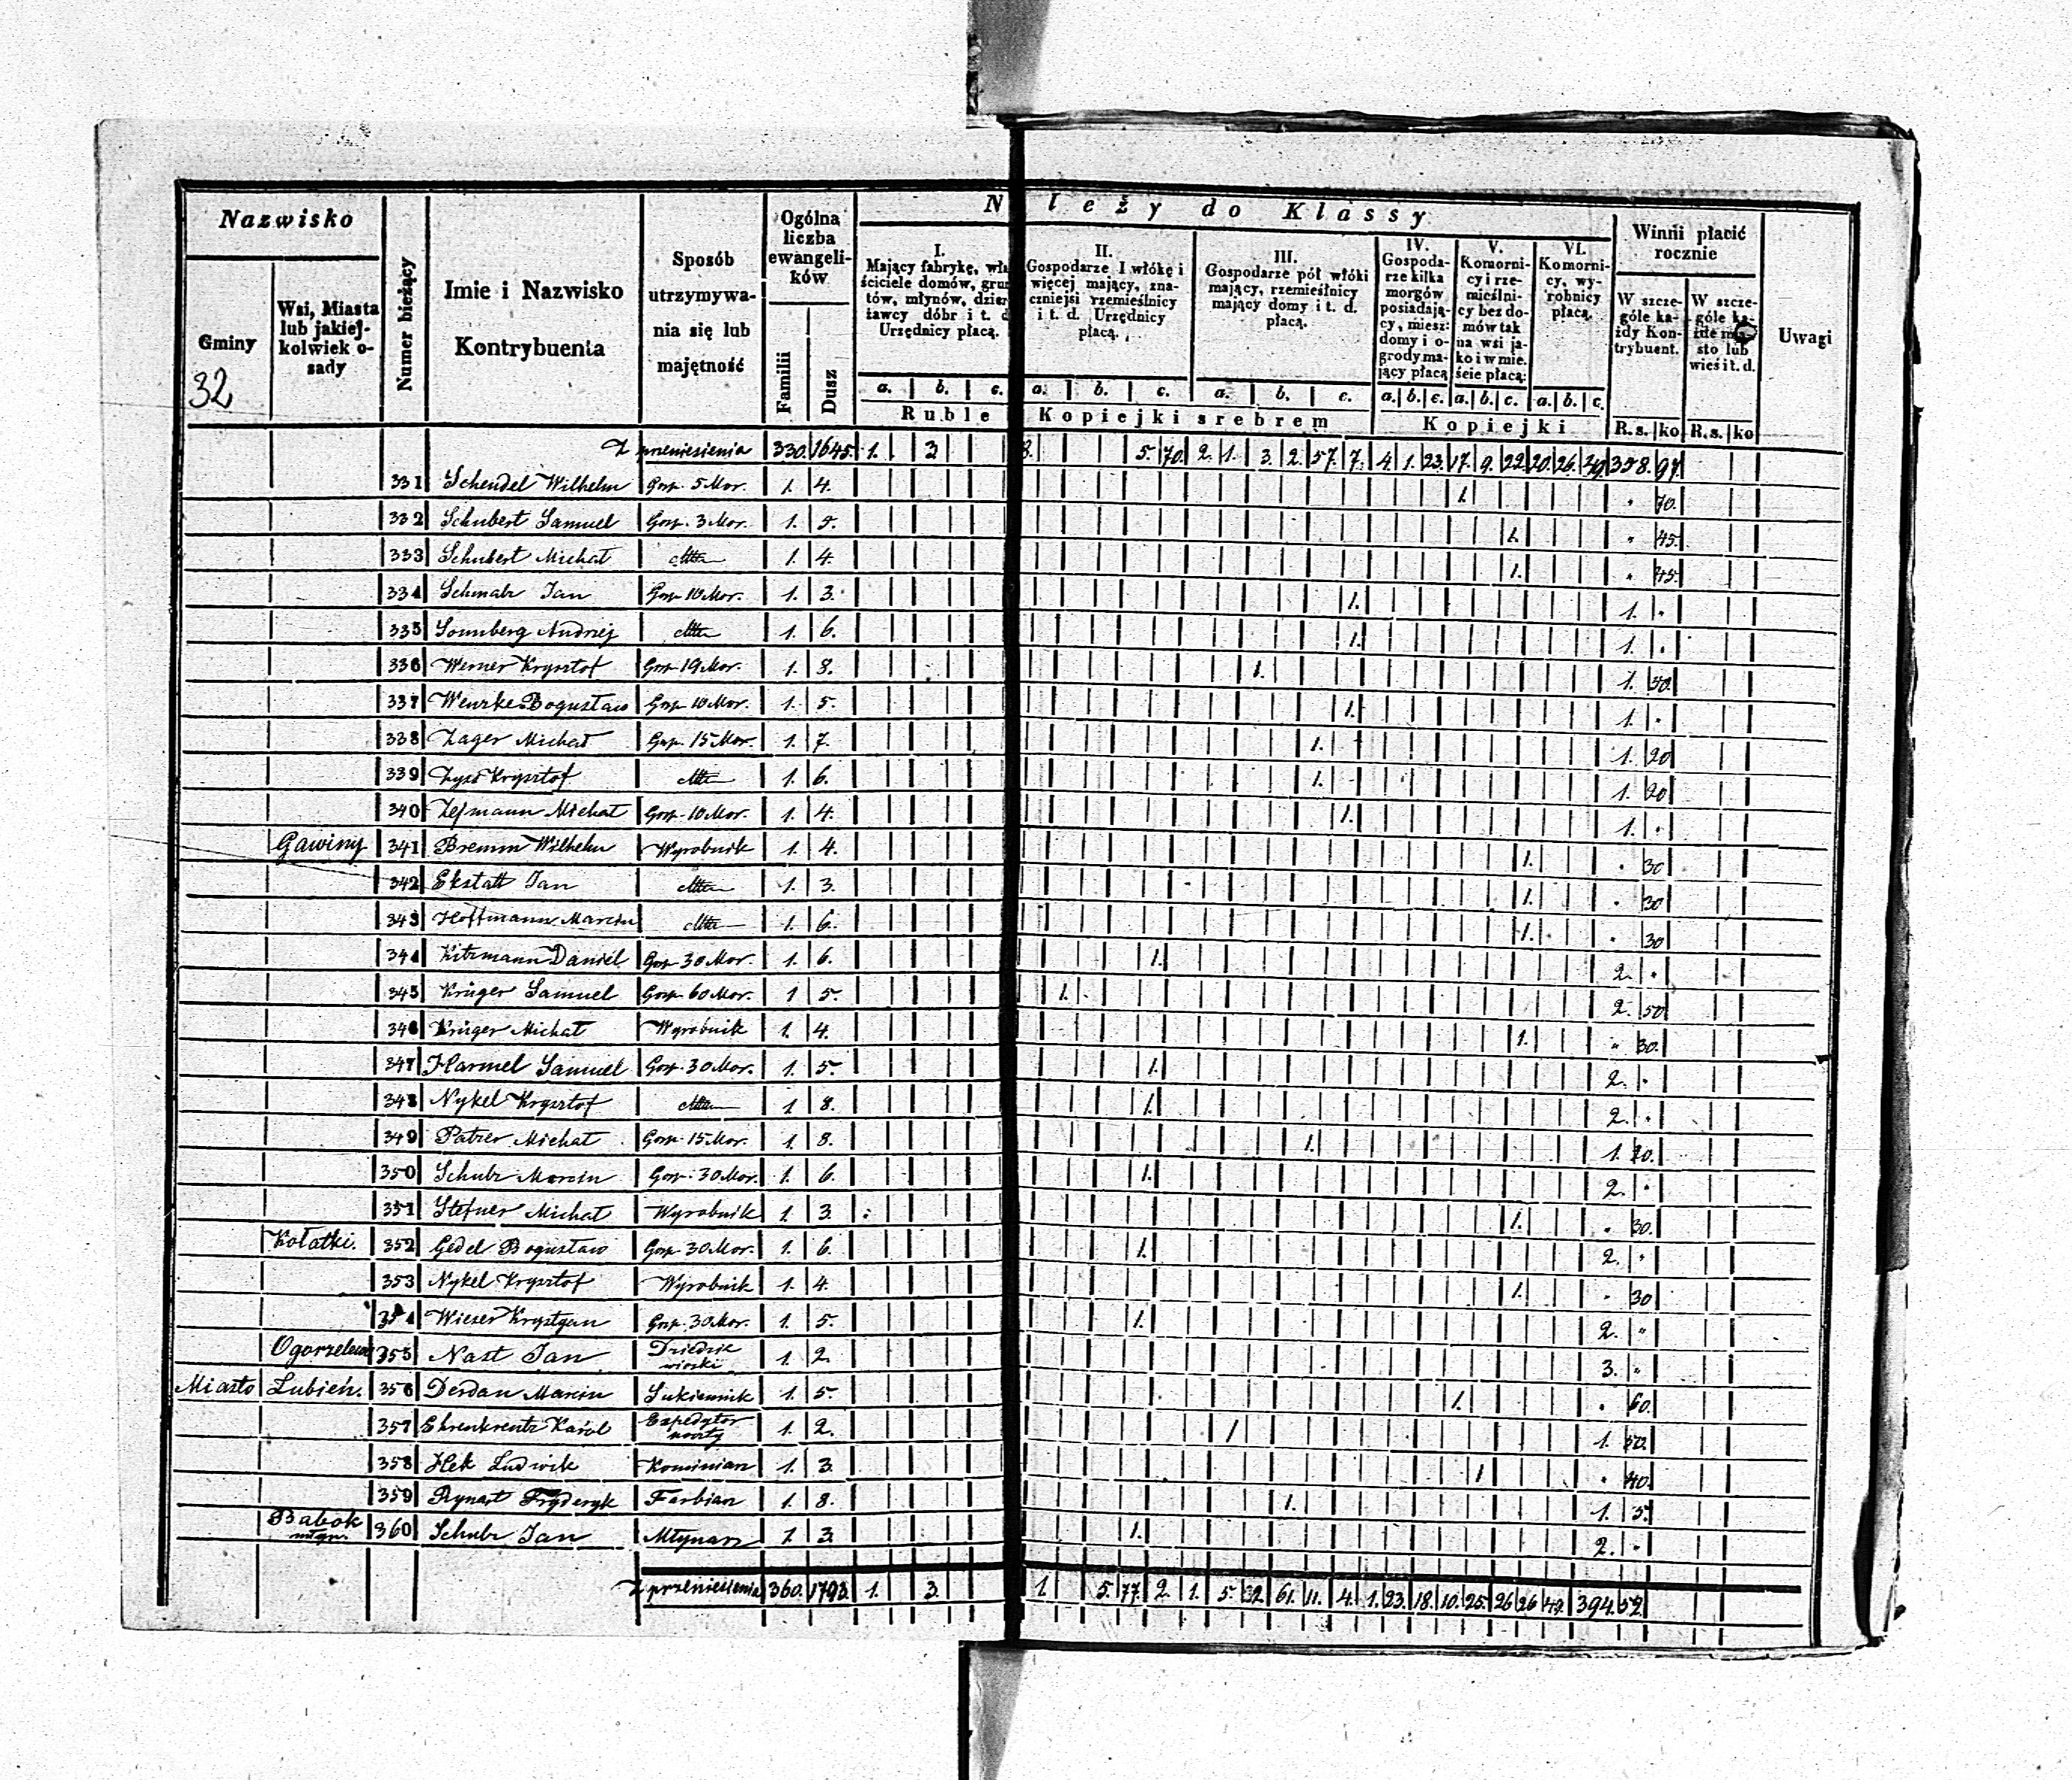 Nazwisko
Gminy
32
Wsi, Miasta lub jakiej-kolwiek o-sady
Numer bieżący
Imie i Nazwisko
Kontrybuenta
Sposób utrzymywa-nia się lub majętność
Ogólna liczba ewangeli-ków
Familii
Dusz
N leży do Klassy
I. Mający fabrykę, wła ściciele domów, grun tów, młynów, dzier żawcy dóbr i t. d Urzędnicy płacą.
II. Gospodarze I włókę i więcej mający, zna-czniejsi rzemieślnicy i t. d. Urzędnicy płacą.
III. Gospodarze pół włóki mający, rzemieślnicy mający domy i t. d. płacą.
IV. Gospoda-rze kilka morgów posiadają-cy, miesz: domy i o-grody ma-jący płacą
V. Komorni-cy i rze-mieślni-cy bez do-mów tak na wsi ja-ko i w mie-ście płacą:
VI. Komorni-cy, wy-robnicy płacą.
Winni płacić rocznie
W szcze-góle ka-żdy Kon-trybuent.
W szcze-góle ka-żde mia-sto lub wieś i t. d.
Uwagi
a. b. c. a. b. c. a. b. c. a. b. c. a. b. c. a. b. c.
Ruble Kopiejki srebrem Kopiejki R.s. ko R.s. ko
Z przeniesienia 330. 1645. 1. 3 8. 5. 70. 2. 1. 3. 2. 57. 7. 4. 1. 23. 17. 9. 22. 20. 26. 49. 358. 97.
331 Schendel Wilhelm Gosp. 5 Mor. 1. 4. 1. " 70.
332 Schubert Samuel Gosp. 3 Mor. 1. 5. 1. " 45.
333 Schubert Michał 1. 4. 1. " 45.
334 Schmalz Jan Gosp 10 Mor. 1. 3. 1. 1. "
335 Sonnberg Andrzej 1. 6. 1. 1. "
336 Werner Krysztof Gosp 19 Mor. 1. 8. 1. 1. 50.
337 Bogusław Gosp 10 Mor. 1. 5. 1. 1. "
338 Zager Michał Gosp. 15 Mor. 1. 7. 1. 1. 20
339 Krysztof 1. 6. 1. 1. 20
340 Michał Gosp. 10 Mor. 1. 4. 1. 1. "
Gawiny 341 Bremm Wilhelm Wyrobnik 1. 4. 1. " 30
342 Ekstatt Jan 1. 3. 1. " 30
343 Hoffmann Marcin 1. 6. 1. " 30
344 Kitzmann Daniel Gosp 30 Mor. 1. 6. 1. 2. "
345 Krüger Samuel Gosp 60 Mor. 1 5. 1. 2. 50
346 Krüger Michał Wyrobnik 1. 4. 1. " 30.
347 Harmel Samuel Gosp. 30 Mor. 1. 5. 1. 2. "
348 Nykel Krysztof 1 8. 1. 2. "
349 Patzer Michał Gosp. 15 Mor. 1. 8. 1. 1. 20.
350 Schulz Marcin Gosp. 30 Mor. 1. 6. 1. 2. "
351 Stefner Michał Wyrobnik 1. 3. 1. " 30.
Kołatki. 352 Gedel Bogusław Gosp. 30 Mor. 1. 6. 1. 2. "
353 Nykel Krysztof Wyrobnik 1. 4. 1. " 30
354 Wieser Krystyan Gosp. 30 Mor. 1. 5. 1. 2. "
355 Nast Jan Dziedzic wioski 1. 2. 3. "
Miasto Lubień. 356 Derdan Marcin Sukiennik 1. 5. 1. " 60.
357 Ehrenkreutz Karol Expedytor poczty 1. 2. 1 1. 50.
358 Hek Ludwik Kominiarz 1. 3. 1 " 40.
359 Rynast Fryderyk Farbiarz 1. 8. 1. 1. 5.
Babok młyn. 360 Schulz Jan Młynarz 1 3. 1. 2. "
Z przeniesienia 360. 1793. 1. 3. 1 5. 77. 2. 1. 5. 32. 61. 11. 4. 1. 23. 18. 10. 25. 26. 26 49. 394. 52.